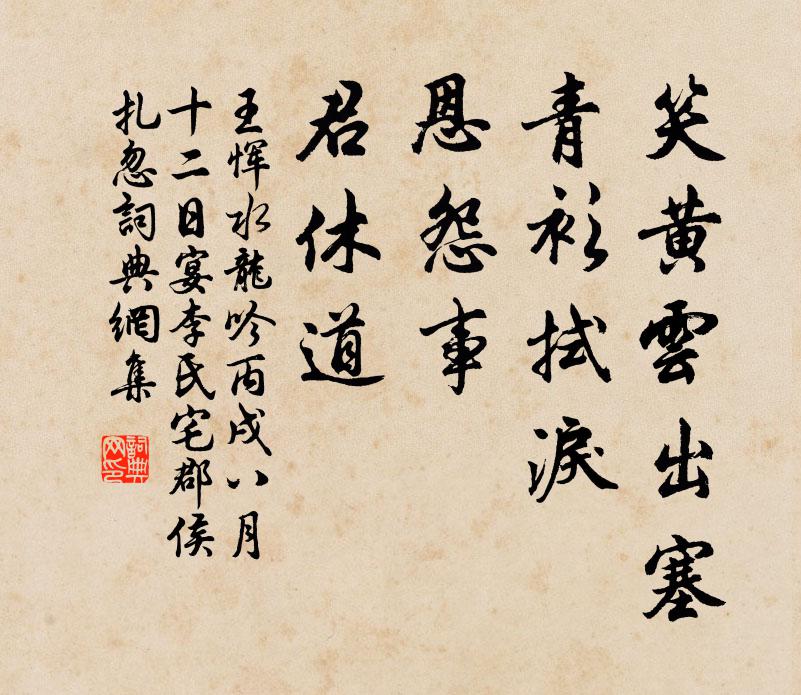 笑黄雲出塞
青衫拭淚
恩怨事
君休道
王惲水龍吟丙戌八月
十二日宴李氏宅郡侯
扎忽詞典網集
詞典网印